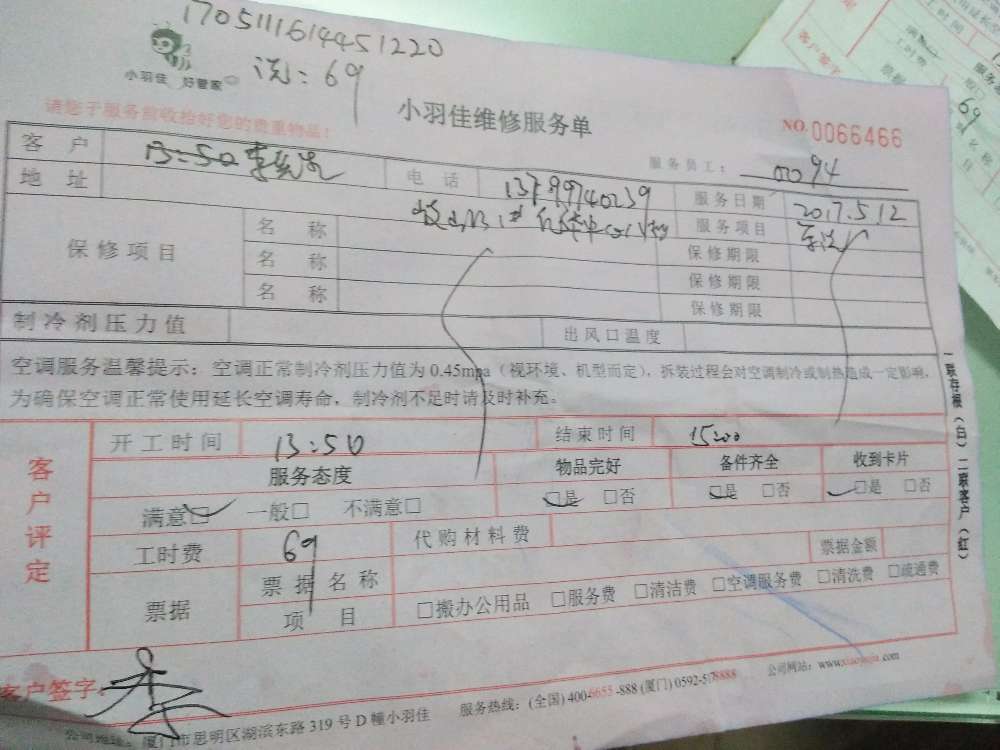 1705111614451220
小羽佳 好管家
洗：69
小羽佳维修服务单
NO.0066466
请您于服务前收拾好您的贵重物品！
服务员工： 0094
客 户 13:50 李
电 话 13799740239 服务日期 2017.5.12
地 址
服务项目
保修项目 名 称 保修期限
名 称 保修期限
名 称 保修期限
制冷剂压力值 出风口温度
空调服务温馨提示：空调正常制冷剂压力值为 0.45mpa（视环境、机型而定），拆装过程会对空调制冷或制热造成一定影响，
为确保空调正常使用延长空调寿命，制冷剂不足时请及时补充。
客户评定
开工时间 13:50 结束时间 15:00
服务态度 物品完好 备件齐全 收到卡片
满意□ 一般□ 不满意□ □是 □否 □是 □否 □是 □否
工时费 69 代购材料费 票据金额
票据 票据名称
项 目 □搬办公用品 □服务费 □清洁费 □空调服务费 □清洗费 □疏通费
客户签字：
公司地址：厦门市思明区湖滨东路 319 号 D 幢小羽佳 服务热线：(全国) 400-6655-888 (厦门) 0592-5 8888 公司网站：www.xiaoyujia.com
一联存根（白）二联客户（红）